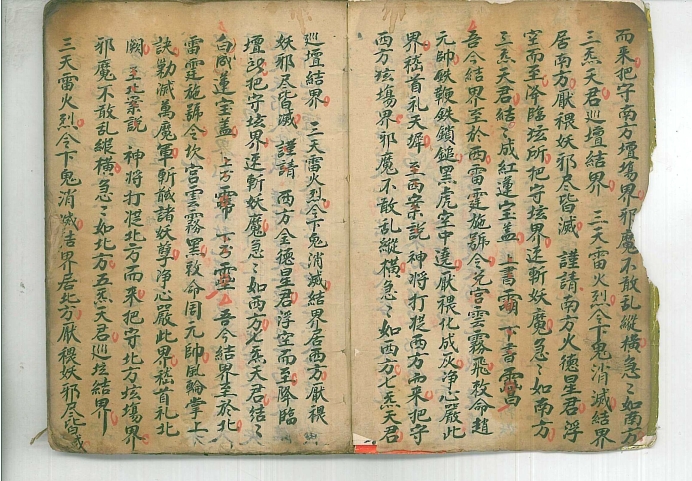 而来把守南方壇塲界邪魔不敢乱縱橫急〻如南方
三炁天君廵壇結界　三天雷火烈令下鬼消滅結界
居南方厭穢妖邪尽皆滅　謹請南方火德星君浮
空而至降臨坛所把守坛界逆斬妖魔急〻如南方
三炁天君結〻成紅蓮宝盖　上書　下書
吾今結界至於西雷霆施號令兊宮雲霧飛敕命趙
元帥鉄鞭鉄鎖鎚黑虎空中遶厭穢化成灰净心嚴此
界嵇首礼天墀　至西案説　神將打從西方而来把守
西方坛塲界邪魔不敢乱縱橫急〻如西方七炁天君
廵壇結界　三天雷火烈令下鬼消滅結界居西方厭穢
妖邪尽皆滅　謹請　西方全德星君浮空而至降臨
壇所把守坛界逆斬妖魔急〻如西方七炁天君結〻
白成蓮宝盖　上　下　吾今結界至於北
雷霆施號令坎宮雲霧黑敕命周元帥風輪掌上
訣勦滅萬魔軍斬馘諸妖孽净心嚴此界嵇首礼北
闕　至北案説　神將打從北方而来把守北方坛塲界
邪魔不敢乱縱橫急〻如北方五炁天君廵坛結界
三天雷火烈令下鬼消滅结界居北方厭穢妖邪尽皆滅